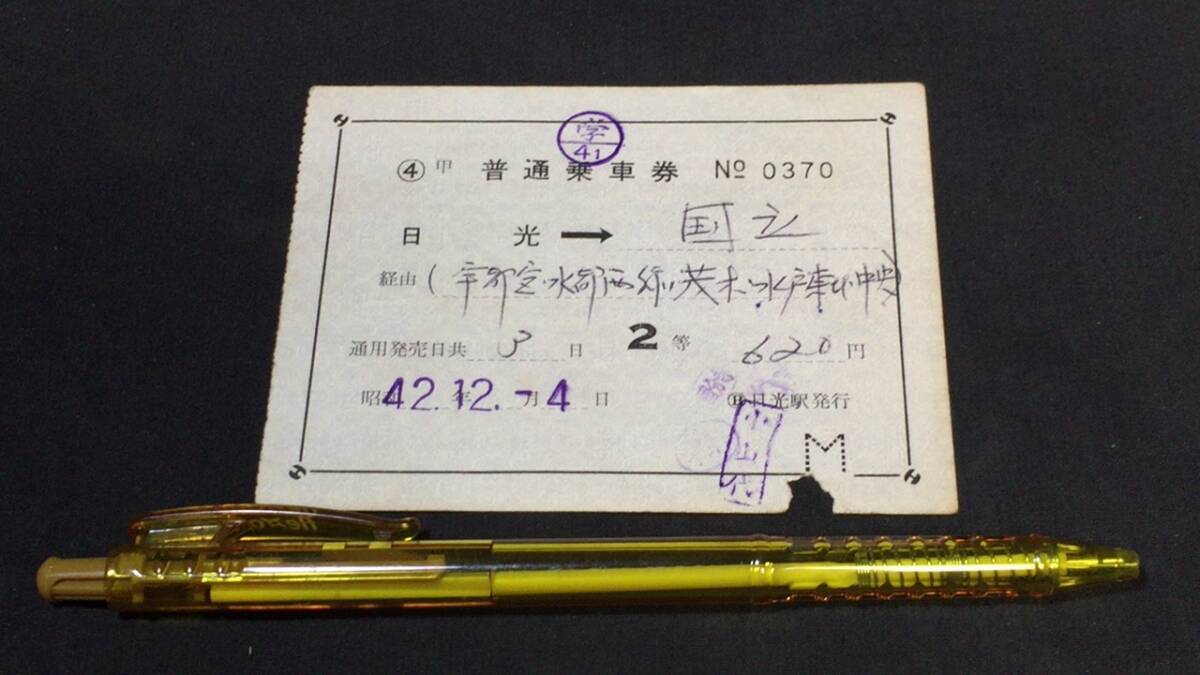 学
41
④ 甲 普通乗車券 Nº 0370
日 光 → 国立
経由 ( 宇都宮 水戸 茂木 水戸 中央 )
通用発売日共 3 日 2 等 620 円
昭 42.年12.-月4 日 日光駅発行
小山
M